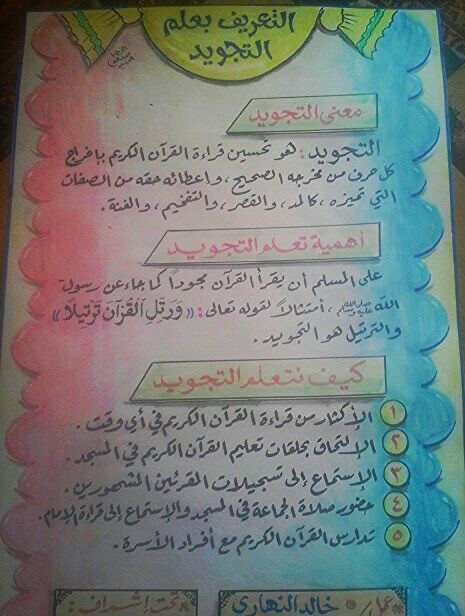 التعريف بعلم
التجويد
معنى التجويد
التجويد: هو تحسين قراءة القرآن الكريم بإخراج
كل حرف من مخرجه الصحيح، وإعطائه حقه من الصفات
التي تميزه، كالمد، والقصر، والتفخيم، والغنة.
أهمية تعلم التجويد
على المسلم أن يقرأ القرآن مجوداً كما جاء عن رسول
الله صلى الله عليه وسلم، امتثالاً لقوله تعالى: «وَرَتِّلِ الْقُرْآنَ تَرْتِيلًا»
والترتيل هو التجويد.
كيف نتعلم التجويد
١ الإكثار من قراءة القرآن الكريم في أي وقت.
٢ الالتحاق بحلقات تعليم القرآن الكريم في المسجد.
٣ الاستماع إلى تسجيلات المقرئين المشهورين.
٤ حضور صلاة الجماعة في المسجد والاستماع إلى قراءة الإمام.
٥ تدارس القرآن الكريم مع أفراد الأسرة.
عمل: خالد النهاري
تحت إشراف: